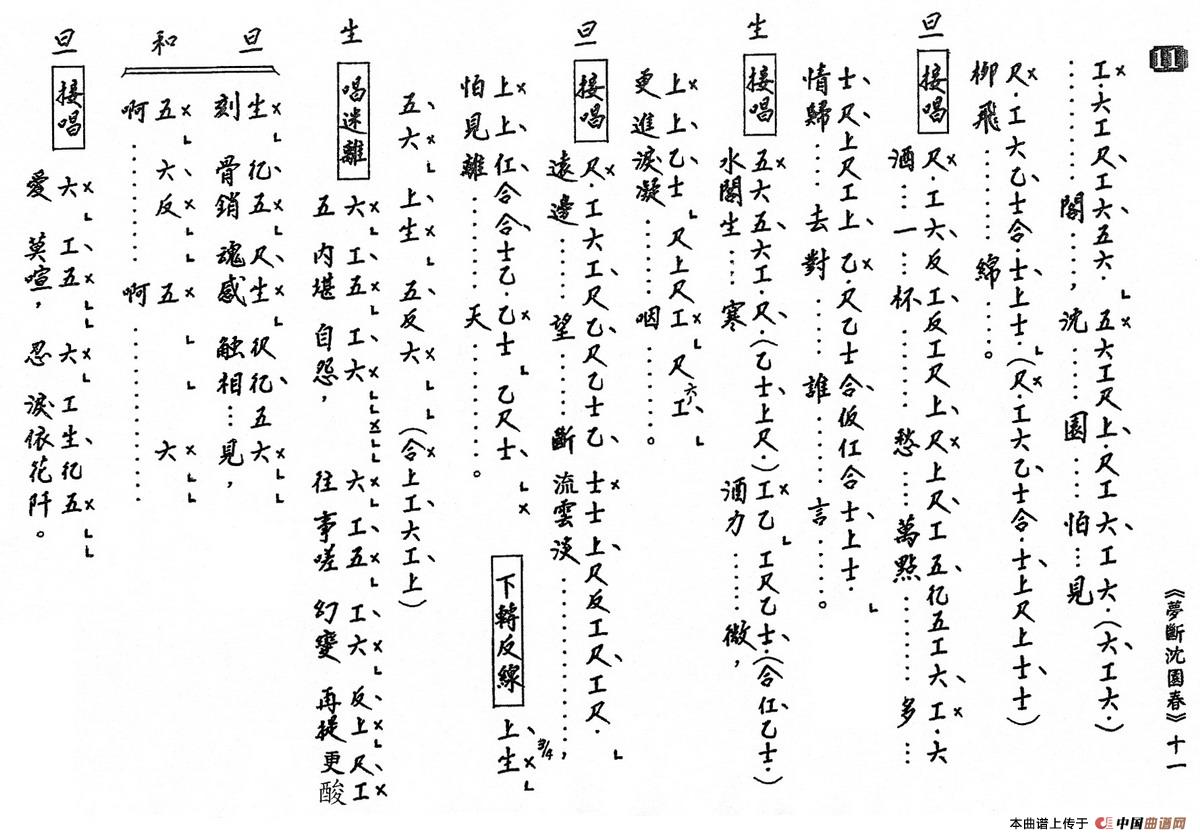 11
工.六工尺工六五六. 五六工尺上.尺工六工六.(六工六.)
………閣……，沈……園……怕…見
尺.工六乙士合.士上士.(尺.工六乙士合.士上尺上士士)
柳飛………綿……。
旦 接唱 尺.工六反工反工尺上.尺上尺工五伬五工六工.六
酒…一…杯………愁…萬點………多…
士尺上尺工上乙.尺乙士合仮仜合士上士.
情歸……去對……誰……言……。
生 接唱 五六五六工.尺.(乙士上尺.)工乙 工尺乙士.(合仜乙士.)
水閣生…寒 酒力……微，
上上乙士 尺上尺工尺六工
更進淚凝………咽………。
旦 接唱 尺.工六工尺乙尺乙士乙 士士上尺反工尺工尺.
遠邊……望……斷流雲淡………，
上上仜合合士乙.乙士 乙尺士
怕見離………天………。
下轉反線 上生 3/4
五六 上生 五反六 (合上工六工上)
生 唱迷離 六工五工六 六工五工六反上尺工
五內堪自怨，往事嗟幻變再提更酸
旦 生伬五尺生伬五六
刻骨銷魂感觸相…見，
和 五六反五六
啊………啊………
旦 接唱 六工五六工生伬五
愛莫喧，忍淚依花阡。
《夢斷沈園春》十一
本曲谱上传于 中国曲谱网